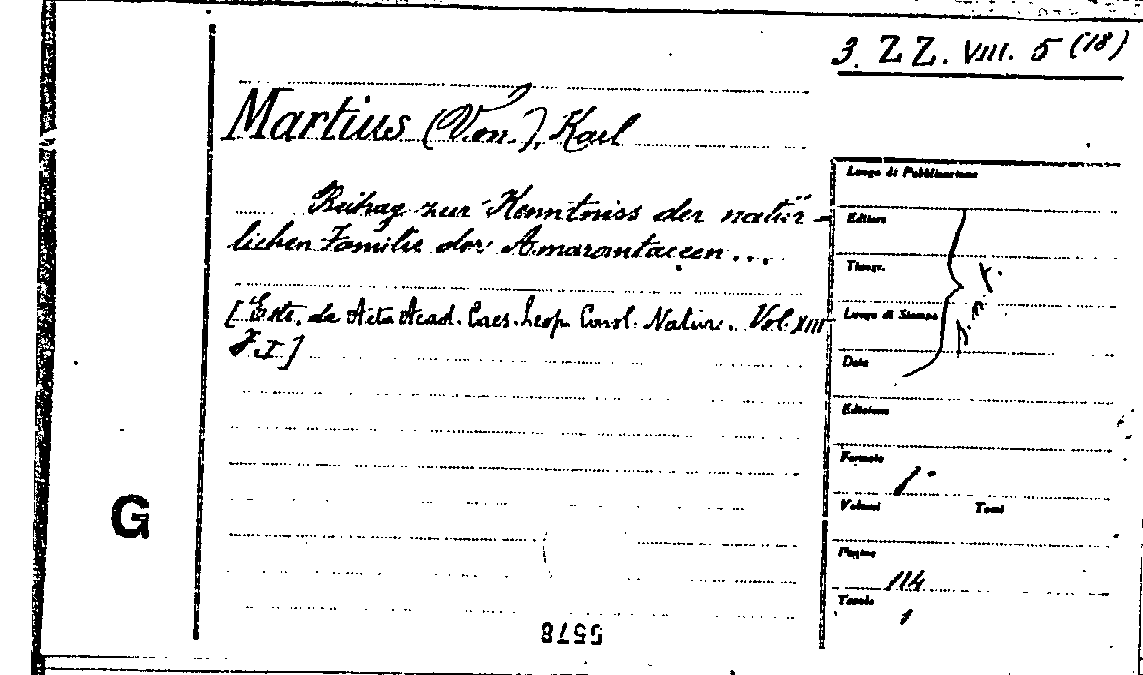 3. ZZ. VIII. 5 (18)
Martius (Von), Karl
Beitrag zur Kenntniss der natür-
lichen Familie der Amarantaceen...
[Estr. da Acta Acad. Caes. Leop. Carol. Natur. Vol. XIII
F. I]
Luogo di Pubblicazione
Editore
Tipogr.
Luogo di Stampa
Data
Edizione
Formato
Volumi Tomi
Pagine
114
Tavole
1
G
5578